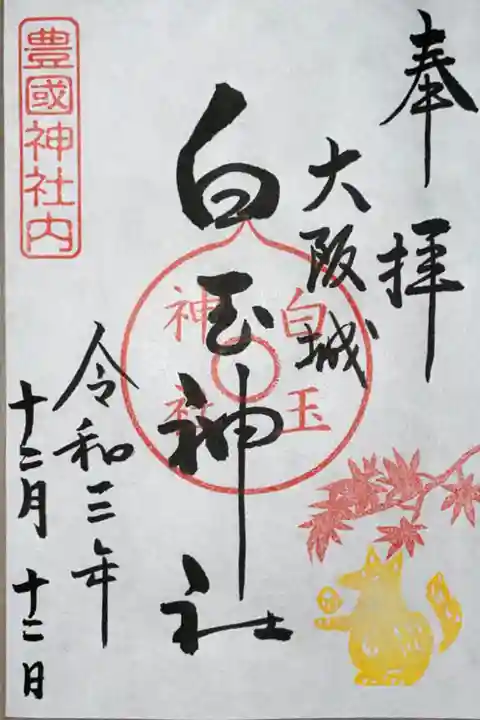 奉拝
大阪城
白玉神社
白玉
神社
令和三年
十二月十二日
豊國神社内